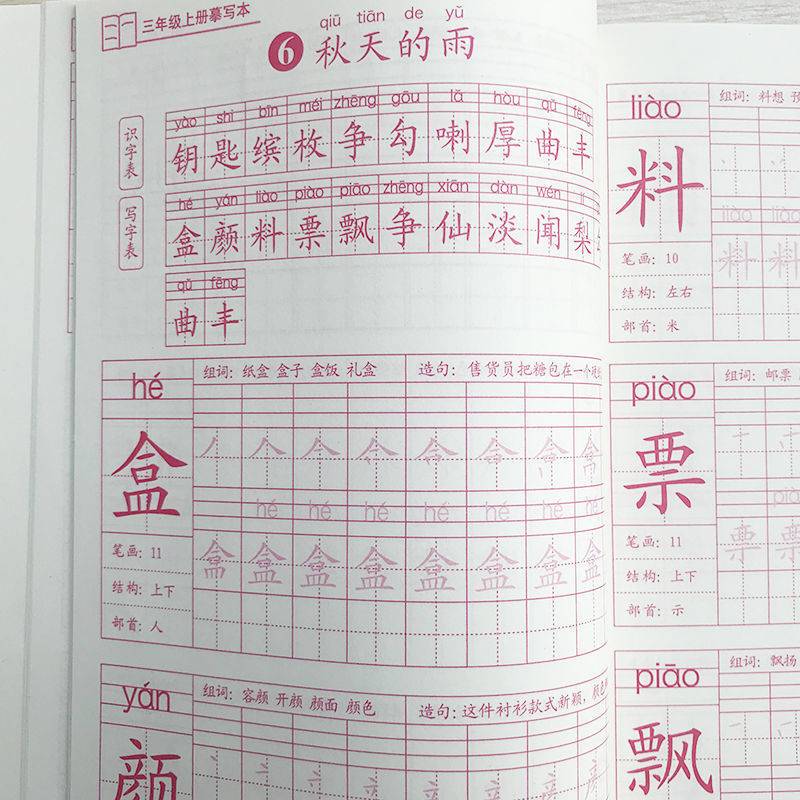 三年级上册摹写本
qiū tiān de yǔ
6 秋天的雨
识字表
yào shi bīn méi zhēng gōu lǎ hòu qǔ fēng
钥 匙 缤 枚 争 勾 喇 厚 曲 丰
写字表
hé yán liào piào piāo zhēng xiān dàn wén lí
盒 颜 料 票 飘 争 仙 淡 闻 梨
qǔ fēng
曲 丰
hé
组词: 纸盒 盒子 盒饭 礼盒
造句: 售货员把糖包在一个
盒
hé hé hé hé hé hé hé
盒 盒 盒 盒 盒 盒 盒 盒
笔画: 11
结构: 上下
部首: 人
yán
组词: 容颜 开颜 颜面 颜色
造句: 这件衬衫款式新颖,颜色
颜
liào
组词: 料想
料
liào liào
料 料
笔画: 10
结构: 左右
部首: 米
piào
组词: 邮票
票
票 票
笔画: 11
结构: 上下
部首: 示
piāo
组词: 飘扬
飘